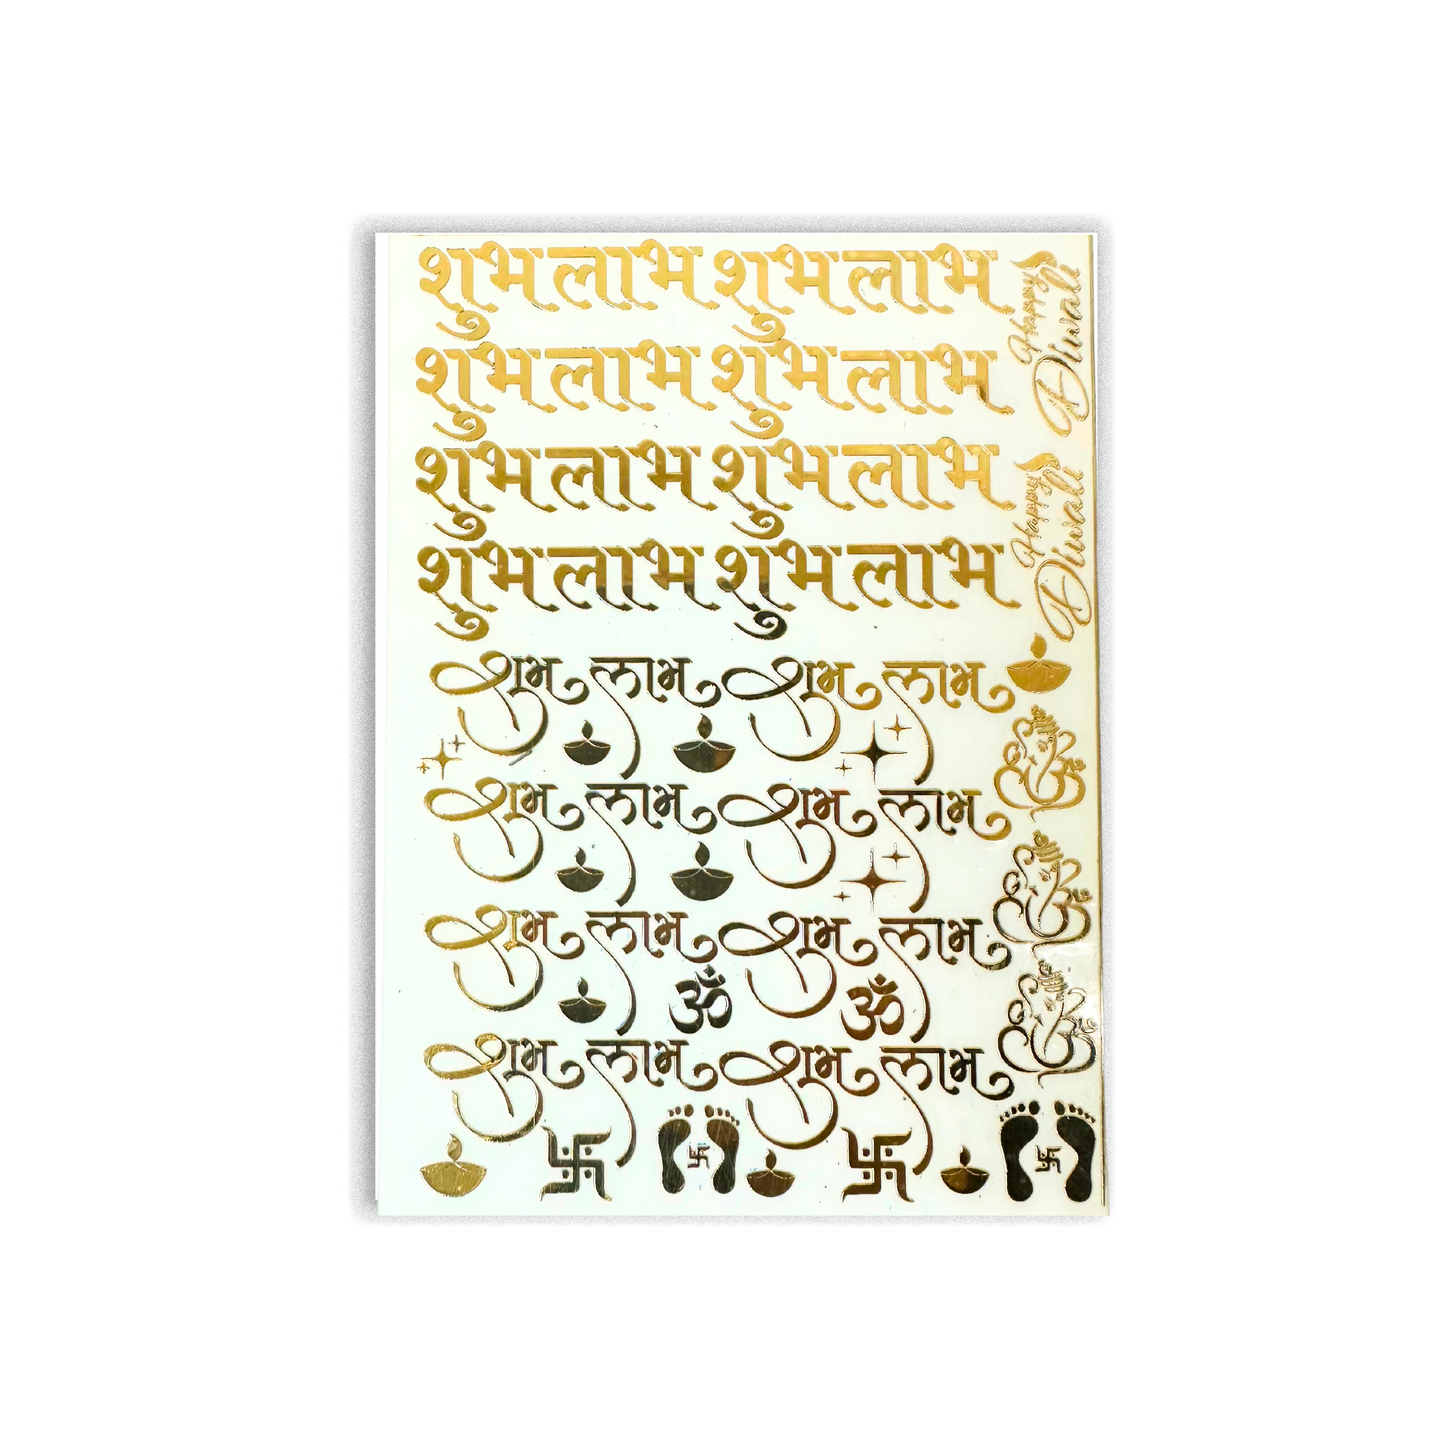 शुभ लाभ शुभ लाभ
शुभ लाभ शुभ लाभ
शुभ लाभ शुभ लाभ
शुभ लाभ शुभ लाभ
शुभ लाभ शुभ लाभ
शुभ लाभ शुभ लाभ
शुभ लाभ शुभ लाभ
ॐ ॐ
शुभ लाभ शुभ लाभ
Happy
Diwali
Happy
Diwali